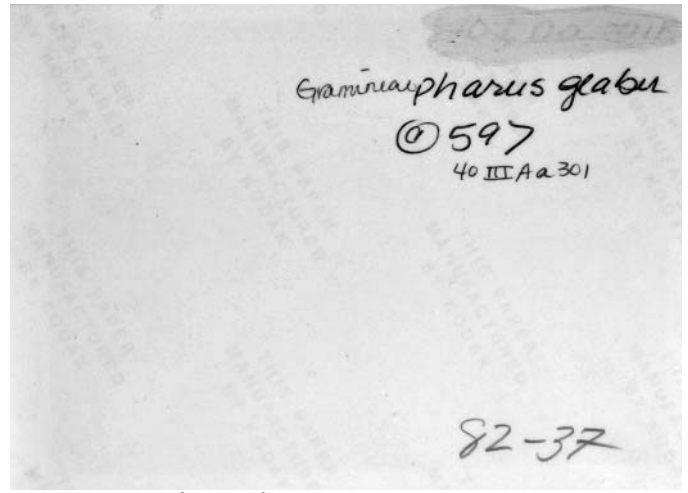 Gramineae pharus glaber
(a) 597
40 III A a 301
82-37
THIS PAPER
MANUFACTURED
BY KODAK